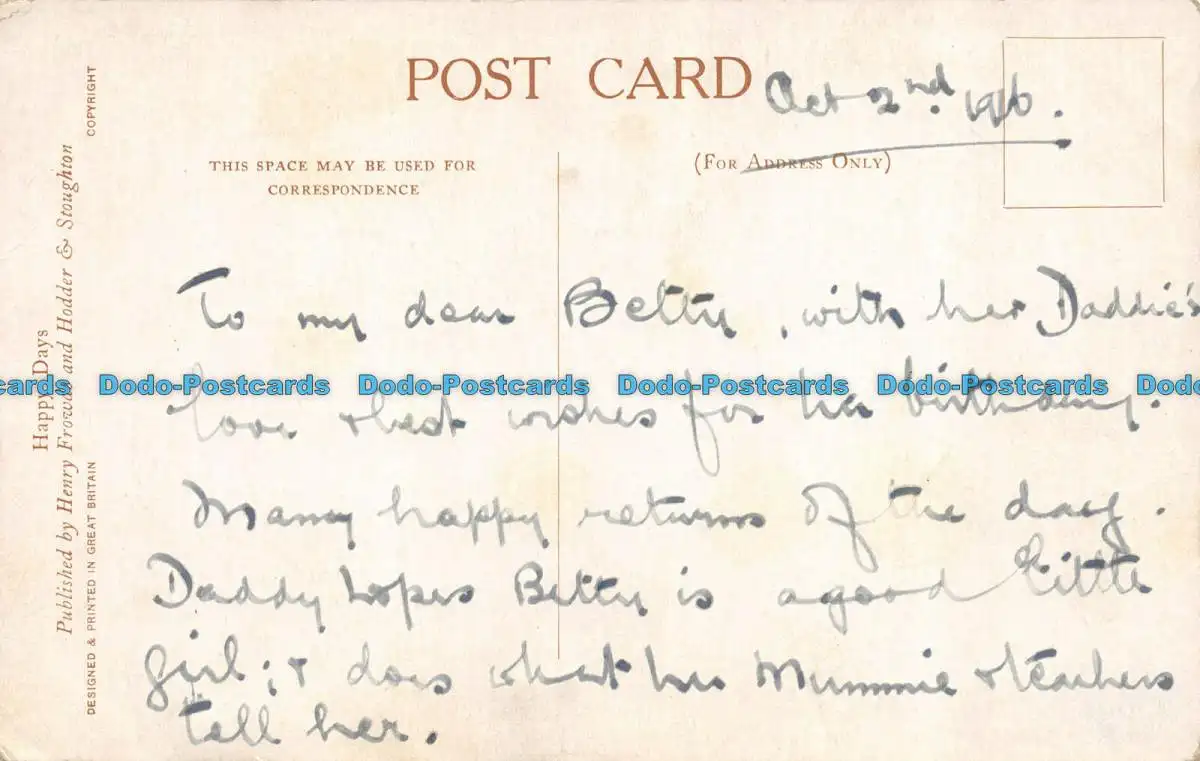 POST CARD
Oct 2nd. 1916.
THIS SPACE MAY BE USED FOR
CORRESPONDENCE
(FOR ADDRESS ONLY)
To my dear Betty, with her Daddie's
love & best wishes for her birthday.
Many happy returns of the day.
Daddy hopes Betty is a good little
girl; & does what her Mummie & teachers
tell her.
Happy Days
Published by Henry Frowde and Hodder & Stoughton
DESIGNED & PRINTED IN GREAT BRITAIN
COPYRIGHT
cards Dodo-Postcards Dodo-Postcards Dodo-Postcards Dodo-Postcards Dodo